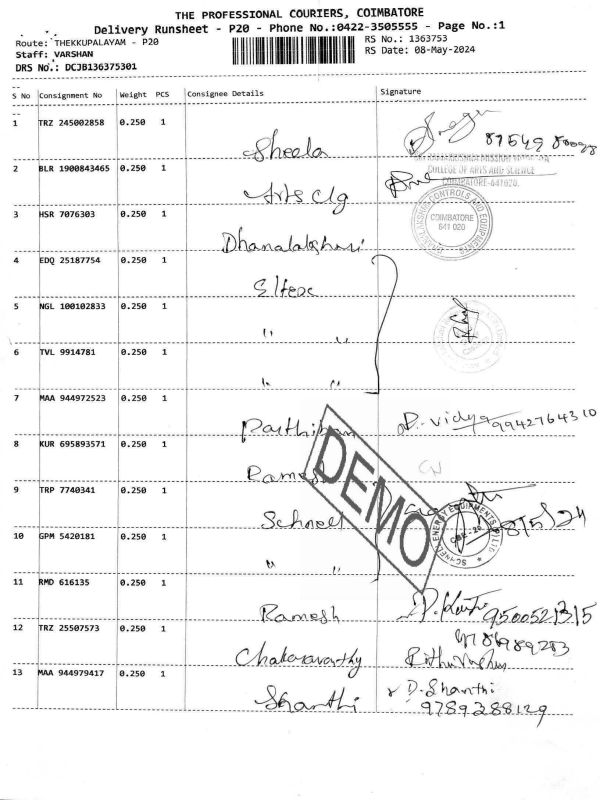 THE PROFESSIONAL COURIERS, COIMBATORE
Delivery Runsheet - P20 - Phone No.:0422-3505555 - Page No.:1
Route: THEKKUPALAYAM - P20
RS No.: 1363753
Staff: VARSHAN
RS Date: 08-May-2024
DRS No.: DCJB136375301
S No Consignment No Weight PCS Consignee Details Signature
1 TRZ 245002858 0.250 1 Sheela
2 BLR 1900843465 0.250 1 Arts Clg
COLLEGE OF ARTS AND SCIENCE
COIMBATORE-641020.
3 HSR 7076303 0.250 1 Dhanalakshmi
CONTROLS AND EQUIPMENTS
COIMBATORE
641 020
4 EDQ 25187754 0.250 1
5 NGL 100102833 0.250 1 " "
6 TVL 9914781 0.250 1 " "
7 MAA 944972523 0.250 1 Parthiban P. Vidya 9942764310
8 KUR 695893571 0.250 1 Ramesh
9 TRP 7740341 0.250 1 Schnell
SCHNELL ENERGY EQUIPMENTS (P) LTD
CBE-20
8/5/24
10 GPM 5420181 0.250 1 " "
DEMO
11 RMD 616135 0.250 1 Ramesh 9500521315
12 TRZ 25507573 0.250 1 Chakaravarthy
13 MAA 944979417 0.250 1 Shanthi D. Shanthi
9789288129